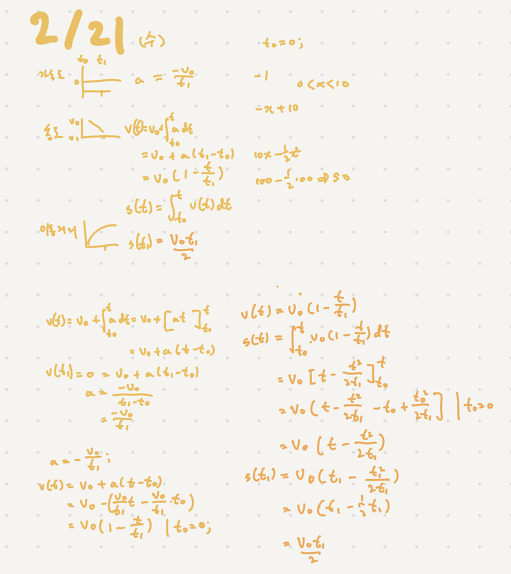 2/21 (수)
t₀=0;
t₀ t₁
가속도 0 a = -v₀/t₁
-1 0<x<10
-x+10
속도 v₀ v(t)=v₀+∫_{t₀}^{t} a dt
= v₀ + a(t₁-t₀)
= v₀(1-t/t₁)
10x-½x²
100-½100⇒50
s(t)=∫_{t₀}^{t} v(t)dt
이동거리 s(t₁) = v₀t₁/2
v(t)=v₀+∫_{t₀}^{t} a dt=v₀+[at]_{t₀}^{t}
= v₀+a(t-t₀)
v(t₁)=0 = v₀+a(t₁-t₀)
a = -v₀/(t₁-t₀)
= -v₀/t₁
a = -v₀/t₁;
v(t) = v₀ + a(t-t₀)
= v₀ -(v₀/t₁ t - v₀/t₁ t₀)
= v₀(1-t/t₁) | t₀=0;
v(t) = v₀(1-t/t₁)
s(t) = ∫_{t₀}^{t} v₀(1-t/t₁)dt
= v₀[t-t²/2t₁]_{t₀}^{t}
= v₀(t-t²/2t₁-t₀+t₀²/2t₁] | t₀=0
= v₀(t-t²/2t₁)
s(t₁) = v₀(t₁-t₁²/2t₁)
= v₀(t₁-½t₁)
= v₀t₁/2